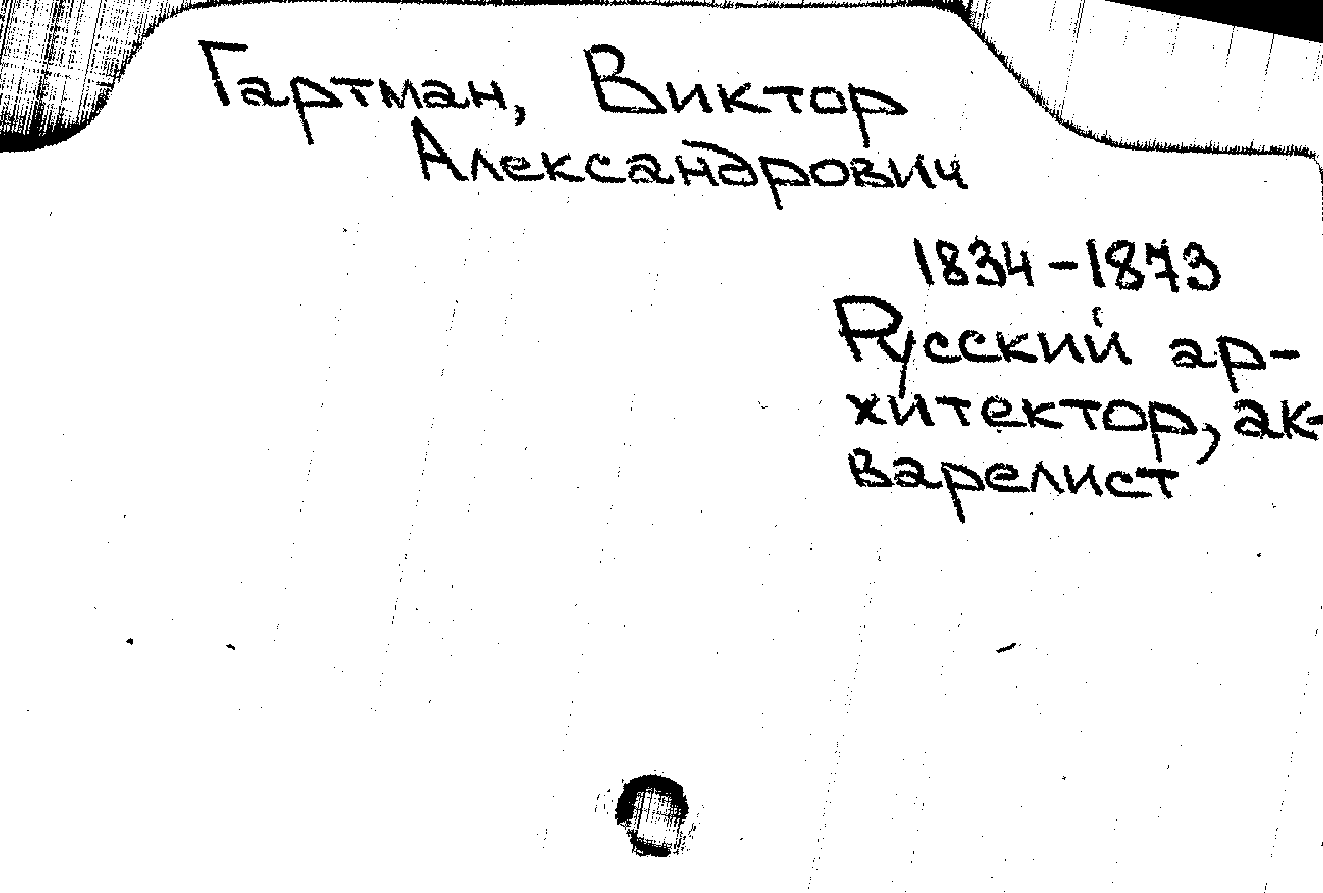 Гартман, Виктор
Александрович
1834-1873
Русский ар-
хитектор, ак-
варелист